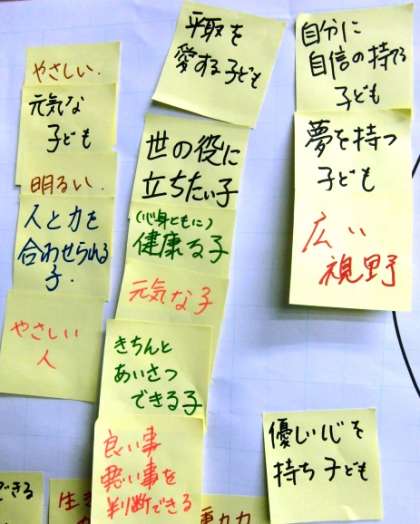 やさしい.
元気な
子ども
明るい.
人と力を
合わせられる
子.
やさしい
人
平取を
愛する子ども
世の役に
立ちたい子
(心身ともに)
健康る子
元気な子
きちんと
あいさつ
できる子
良い事
悪い事を
判断できる
自分に
自信の持てる
子ども
夢を持つ
子ども
広い
視野
優しい心を
持ち子ども
できる